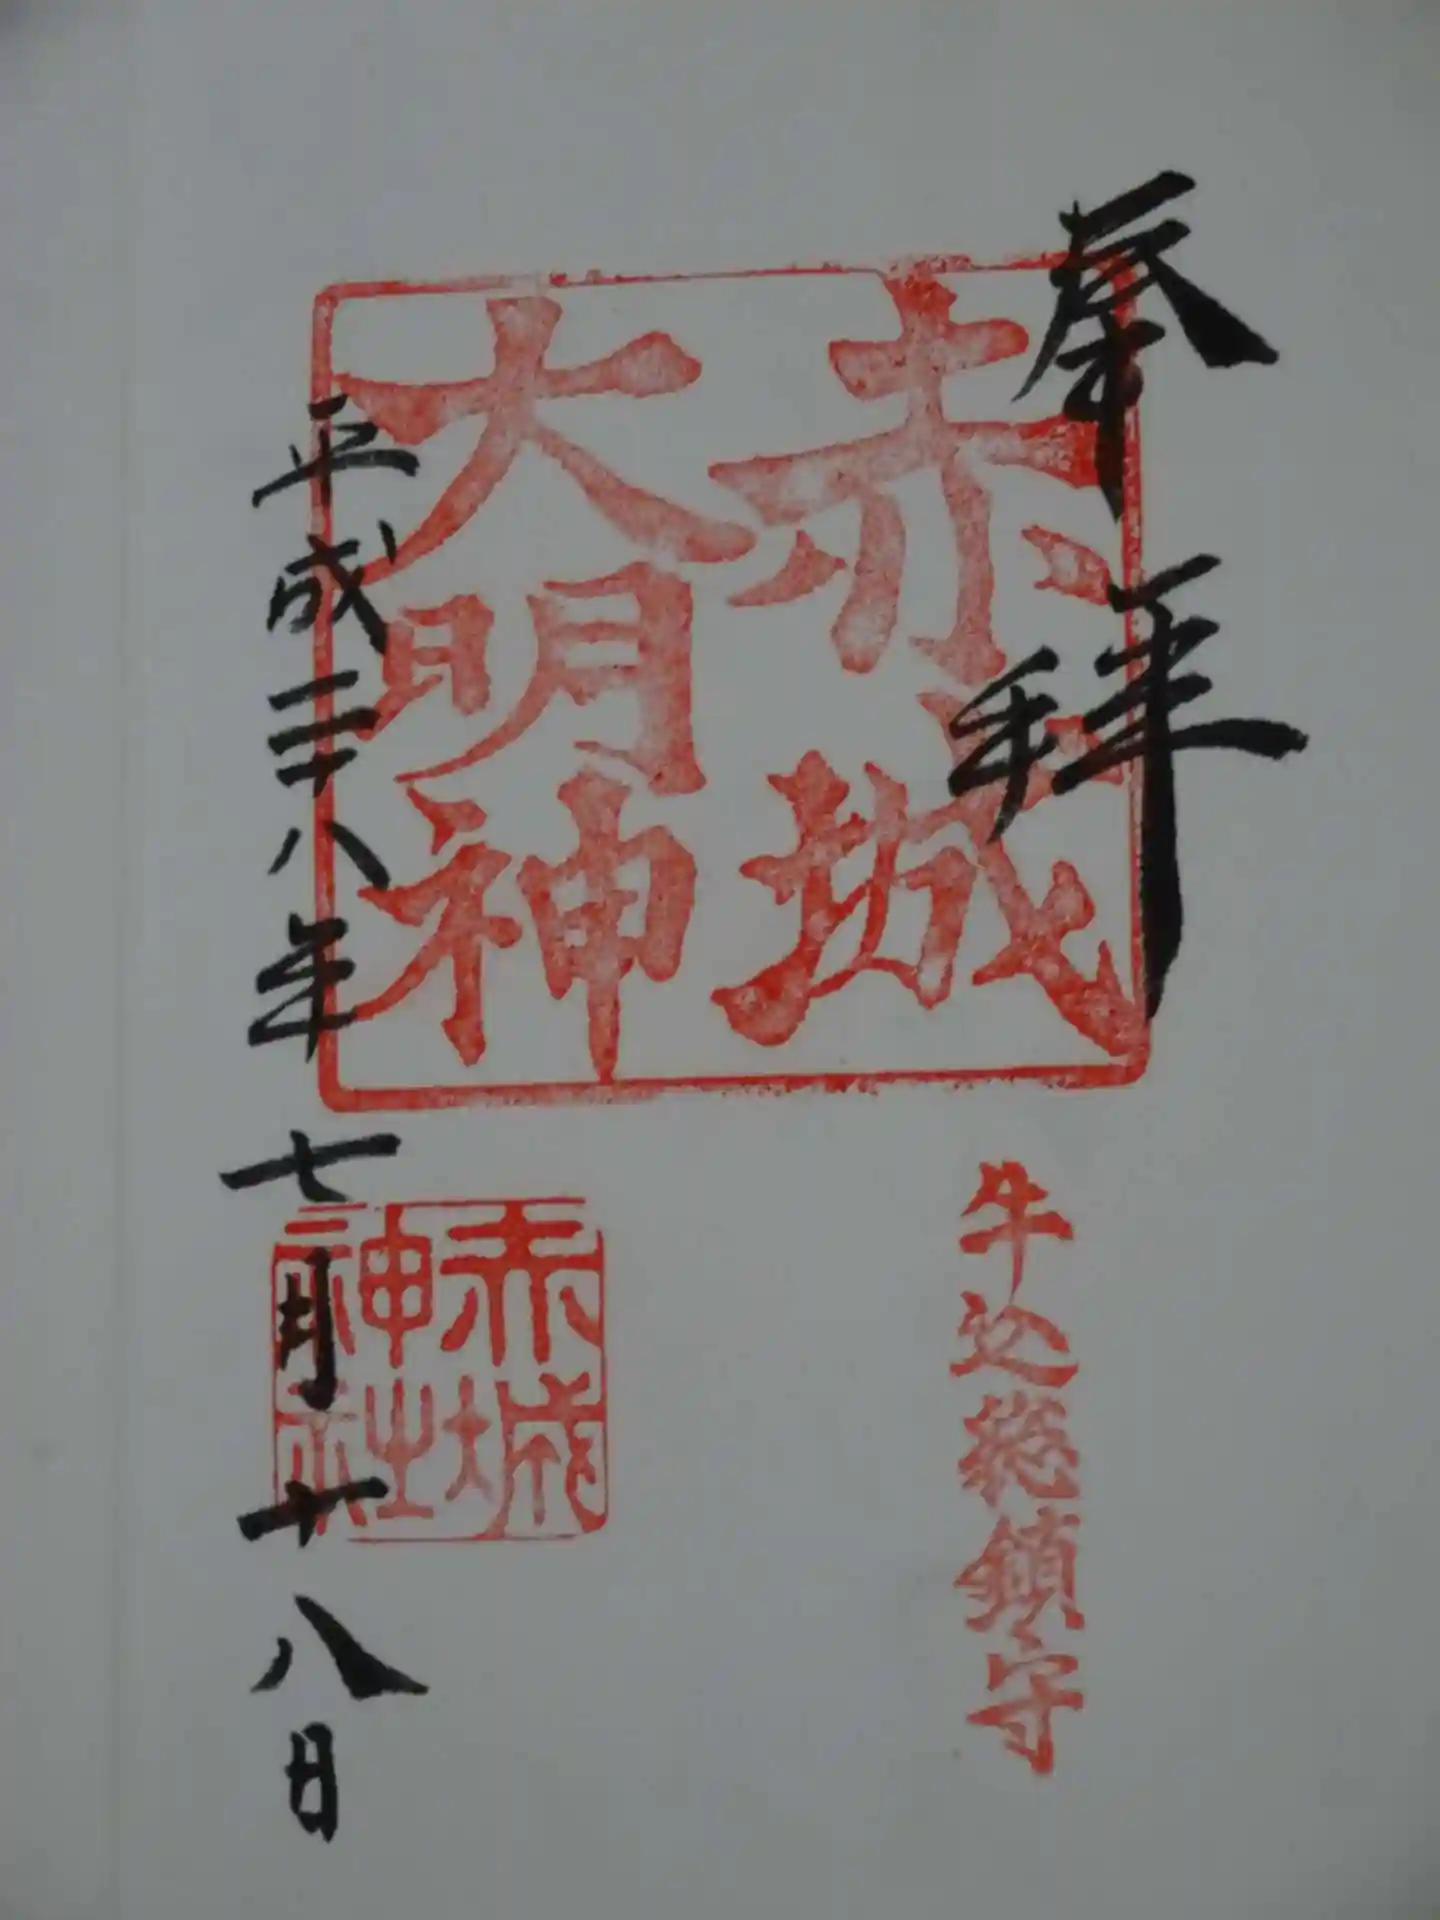 奉拝
赤城
大明神
牛込総鎮守
赤城
神社
平成二十八年七月十八日